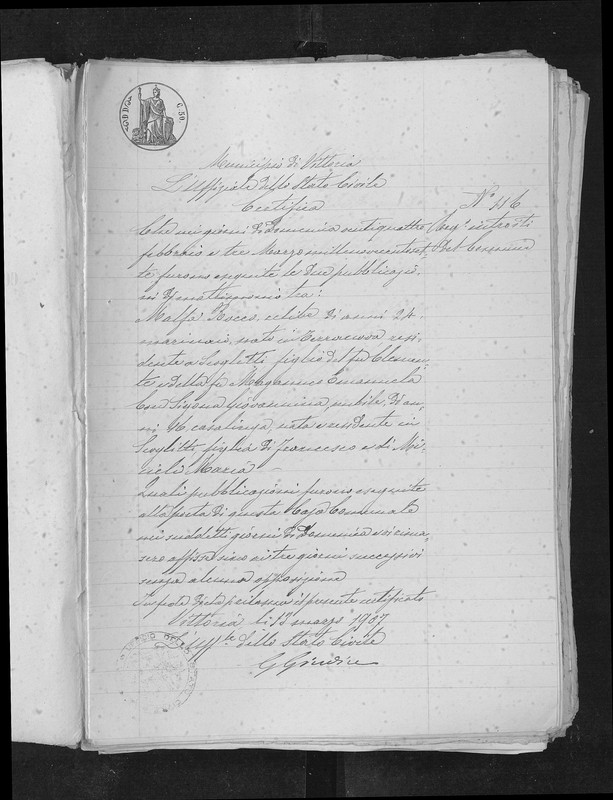 C. 50
Municipio di Vittoria
L'Uffiziale dello Stato Civile
Certifica
N. 46
Che nei giorni di domenica ventiquattro
febbraio e tre Marzo millenovecentoset
te furono eseguite le due pubblicazio
ni di matrimonio tra:
Malfi Rocco, celibe di anni 24
marinaio, nato in Terranova resi
dente a Scoglitti, figlio del fu Clemen
te e della fu Emanuela
Con Giovannina, nubile, di an
ni casalinga, nata e residente in
Scoglitti figlia di Francesco e di Mi
cieli Maria
Quali pubblicazioni furono eseguite
alla porta di questa Casa Comunale
nei suddetti giorni di domenica e vi rima
sero affisse sino ai tre giorni successivi
senza alcuna opposizione
In fede di che rilascio il presente certificato
Vittoria li 13 marzo 1907
L'Uff.le dello Stato Civile
G Giudice